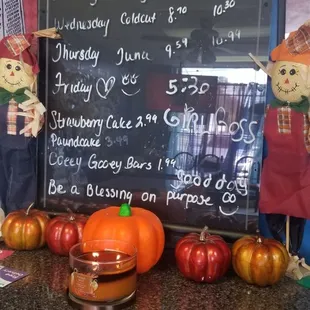 Wednesday Coldcut 8.90 10.30
Thursday Tuna 9.59 10.99
Friday 5:30
Strawberry Cake 2.99 Girl Boss
Poundcake 3.49
Ooey Gooey Bars 1.99
good day
Be a Blessing on purpose